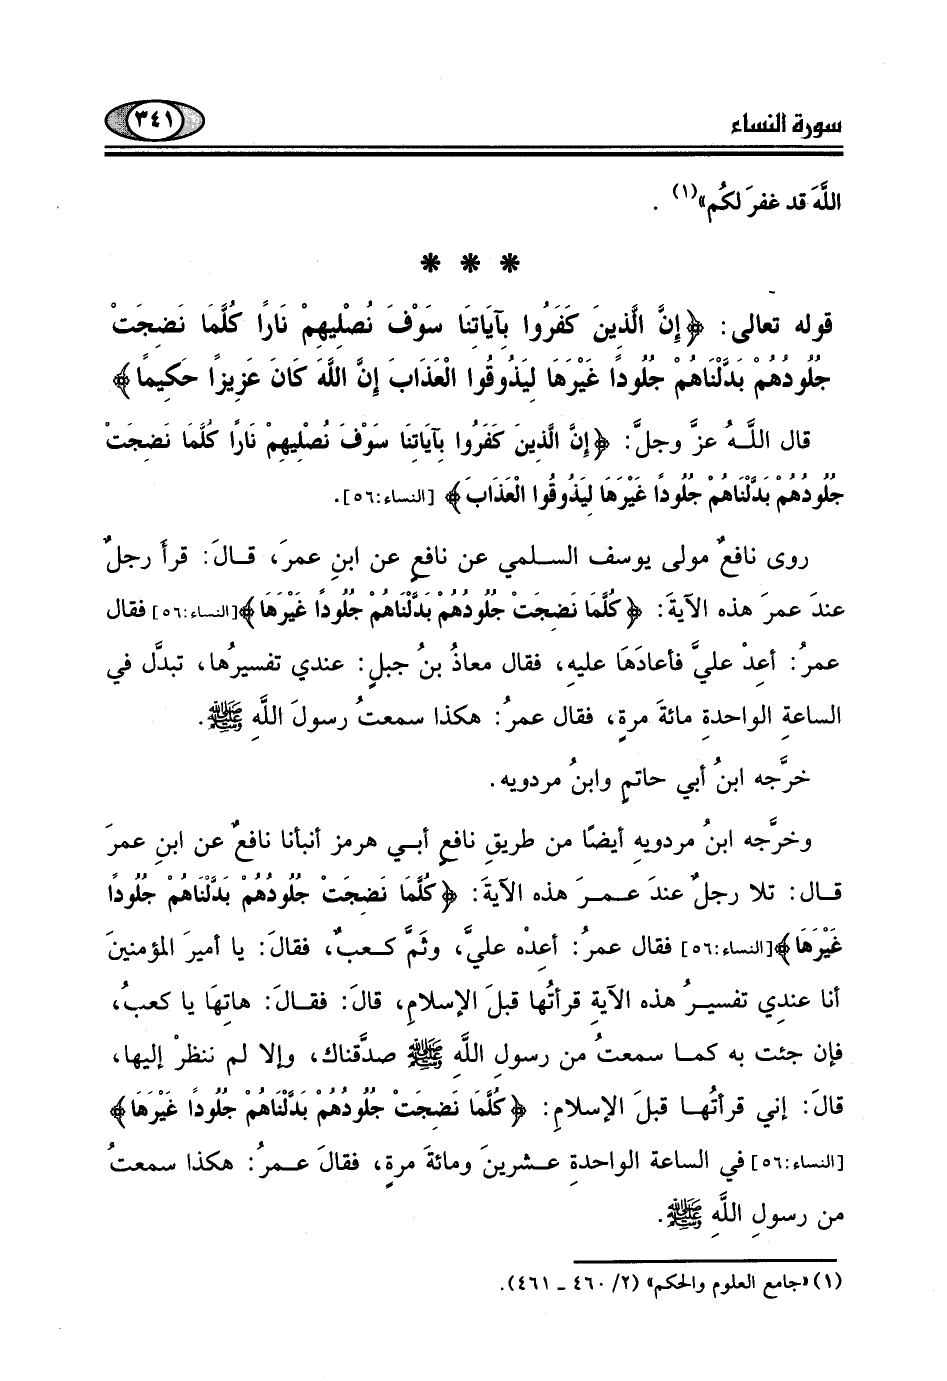 سورة النساء ٣٤١
اللَّهَ قد غفرَ لكُم»(١) .
* * *
قوله تعالى: ﴿إِنَّ الَّذِينَ كَفَرُوا بِآيَاتِنَا سَوْفَ نُصْلِيهِمْ نَارًا كُلَّمَا نَضِجَتْ
جُلُودُهُمْ بَدَّلْنَاهُمْ جُلُودًا غَيْرَهَا لِيَذُوقُوا الْعَذَابَ إِنَّ اللَّهَ كَانَ عَزِيزًا حَكِيمًا﴾
قال اللَّـهُ عزَّ وجلَّ: ﴿إِنَّ الَّذِينَ كَفَرُوا بِآيَاتِنَا سَوْفَ نُصْلِيهِمْ نَارًا كُلَّمَا نَضِجَتْ
جُلُودُهُمْ بَدَّلْنَاهُمْ جُلُودًا غَيْرَهَا لِيَذُوقُوا الْعَذَابَ﴾ [النساء:٥٦].
روى نافعٌ مولى يوسف السـلمي عن نافعٍ عن ابنِ عمرَ، قـالَ: قرأَ رجلٌ
عندَ عمرَ هذه الآيةَ: ﴿كُلَّمَا نَضِجَتْ جُلُودُهُمْ بَدَّلْنَاهُمْ جُلُودًا غَيْرَهَا﴾[النساء:٥٦] فقال
عمرُ: أعِدْ عليَّ فأعادَهَا عليهِ، فقال معاذُ بنُ جبلٍ: عندي تفسيرُها، تبدَّل في
الساعةِ الواحدةِ مائةَ مرةٍ، فقال عمرُ: هكذا سمعتُ رسولَ اللَّهِ ﷺ.
خرَّجه ابنُ أبي حاتمٍ وابنُ مردويه.
وخرَّجه ابنُ مردويهِ أيضًا من طريقِ نافعٍ أبـي هرمز أنبأنا نافعٌ عن ابنِ عمرَ
قـال: تلا رجلٌ عندَ عـمـرَ هذه الآيةَ: ﴿كُلَّمَا نَضِجَتْ جُلُودُهُمْ بَدَّلْنَاهُمْ جُلُودًا
غَيْرَهَا﴾[النساء:٥٦] فقال عمرُ: أعِدْه عليَّ، وثَمَّ كـعبٌ، فقالَ: يا أميرَ المؤمنينَ
أنا عندِي تفسيـرُ هذه الآيةِ قرأتُها قبلَ الإسلامِ، قالَ: فقـالَ: هاتِهَا يا كعبُ،
فإن جئت به كمـا سمعتُ من رسولِ اللَّهِ ﷺ صدَّقناك، وإلا لم ننظرْ إليها،
قالَ: إني قرأتُهـا قبلَ الإسلامِ: ﴿كُلَّمَا نَضِجَتْ جُلُودُهُمْ بَدَّلْنَاهُمْ جُلُودًا غَيْرَهَا﴾
[النساء:٥٦] في الساعة الواحدةِ عـشرينَ ومائةَ مرةٍ، فقالَ عـمرُ: هكذا سمعتُ
من رسولِ اللَّهِ ﷺ.
(١) «جامع العلوم والحكم» (٢/ ٤٦٠ ـ ٤٦١).